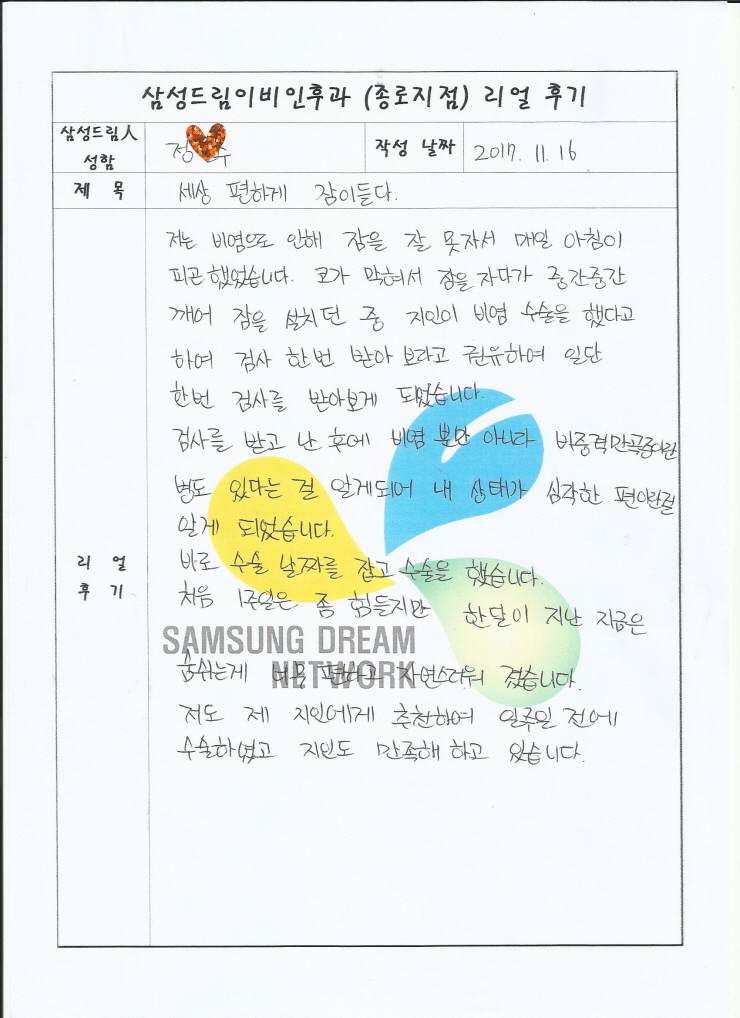 삼성드림이비인후과 (종로지점) 리얼 후기
삼성드림人 성함
정 수
작성 날짜
2017. 11. 16
제 목
세상 편하게 잠이들다.
리 얼 후 기
저는 비염으로 인해 잠을 잘 못자서 매일 아침이
피곤했었습니다. 코가 막혀서 잠을 자다가 중간중간
깨어 잠을 설치던 중 지인이 비염 수술을 했다고
하여 검사 한번 받아 보라고 권유하여 일단
한번 검사를 받아보게 되었습니다.
검사를 받고 난 후에 비염 뿐만 아니라 비중격만곡증이란
병도 있다는 걸 알게되어 내 상태가 심각한 편이란걸
알게 되었습니다.
바로 수술 날짜를 잡고 수술을 했습니다.
처음 1주일은 좀 힘들지만 한달이 지난 지금은
SAMSUNG DREAM
NETWORK
숨쉬는게 너무 편하고 자연스러워 졌습니다.
저도 제 지인에게 추천하여 일주일 전에
수술하였고 지인도 만족해 하고 있습니다.